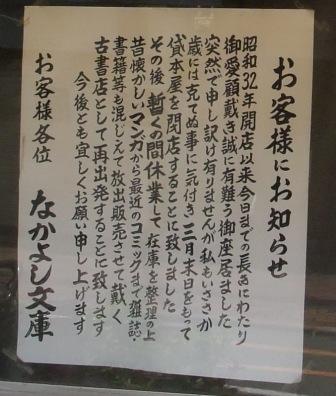 お客様にお知らせ
昭和32年開店以来今日までの長きにわたり
御愛顧戴き誠に有難う御座居ました
突然で申し訳け有りませんが私もいささか
歳には克てぬ事に気付き三月末日をもって
貸本屋を閉店することに致しました
その後暫くの間休業して在庫を整理の上
昔懐かしいマンガから最近のコミックまで雑誌・
書籍等も混じえて放出販売させて戴く
古書店として再出発することに致します
今後とも宜しくお願い申し上げます
お客様各位
なかよし文庫